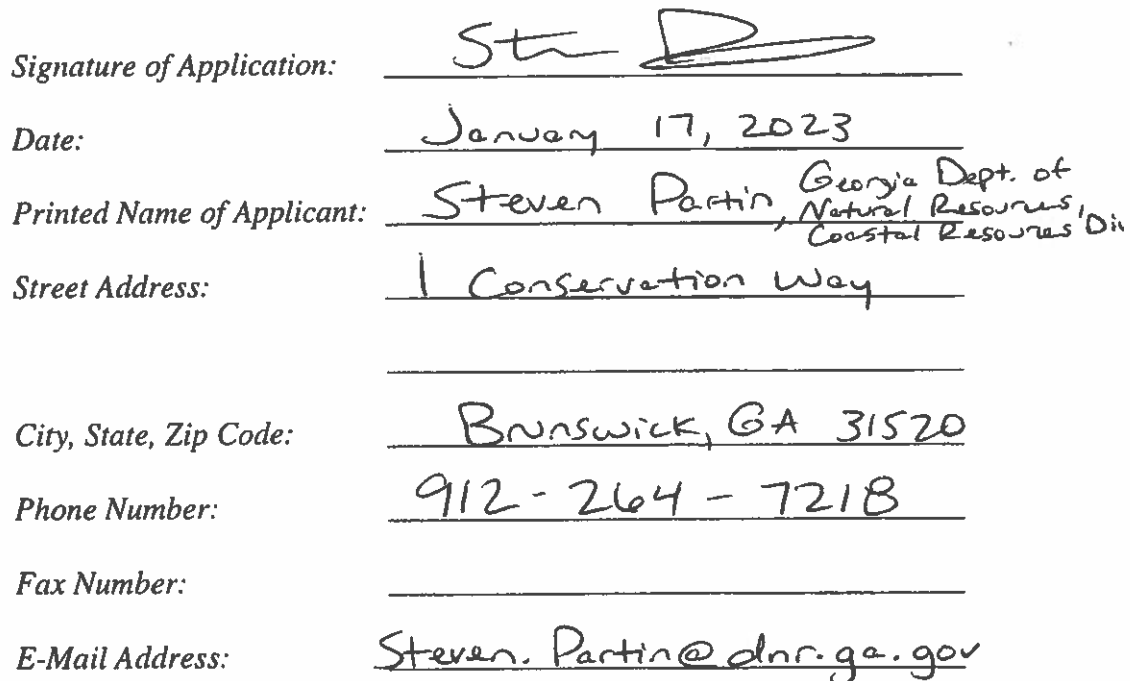 Signature of Application:
Date: January 17, 2023
Printed Name of Applicant: Steven Partin, Georgia Dept. of
Natural Resources,
Coastal Resources Div
Street Address: 1 Conservation Way
City, State, Zip Code: Brunswick, GA 31520
Phone Number: 912-264-7218
Fax Number:
E-Mail Address: Steven.Partin@dnr.ga.gov